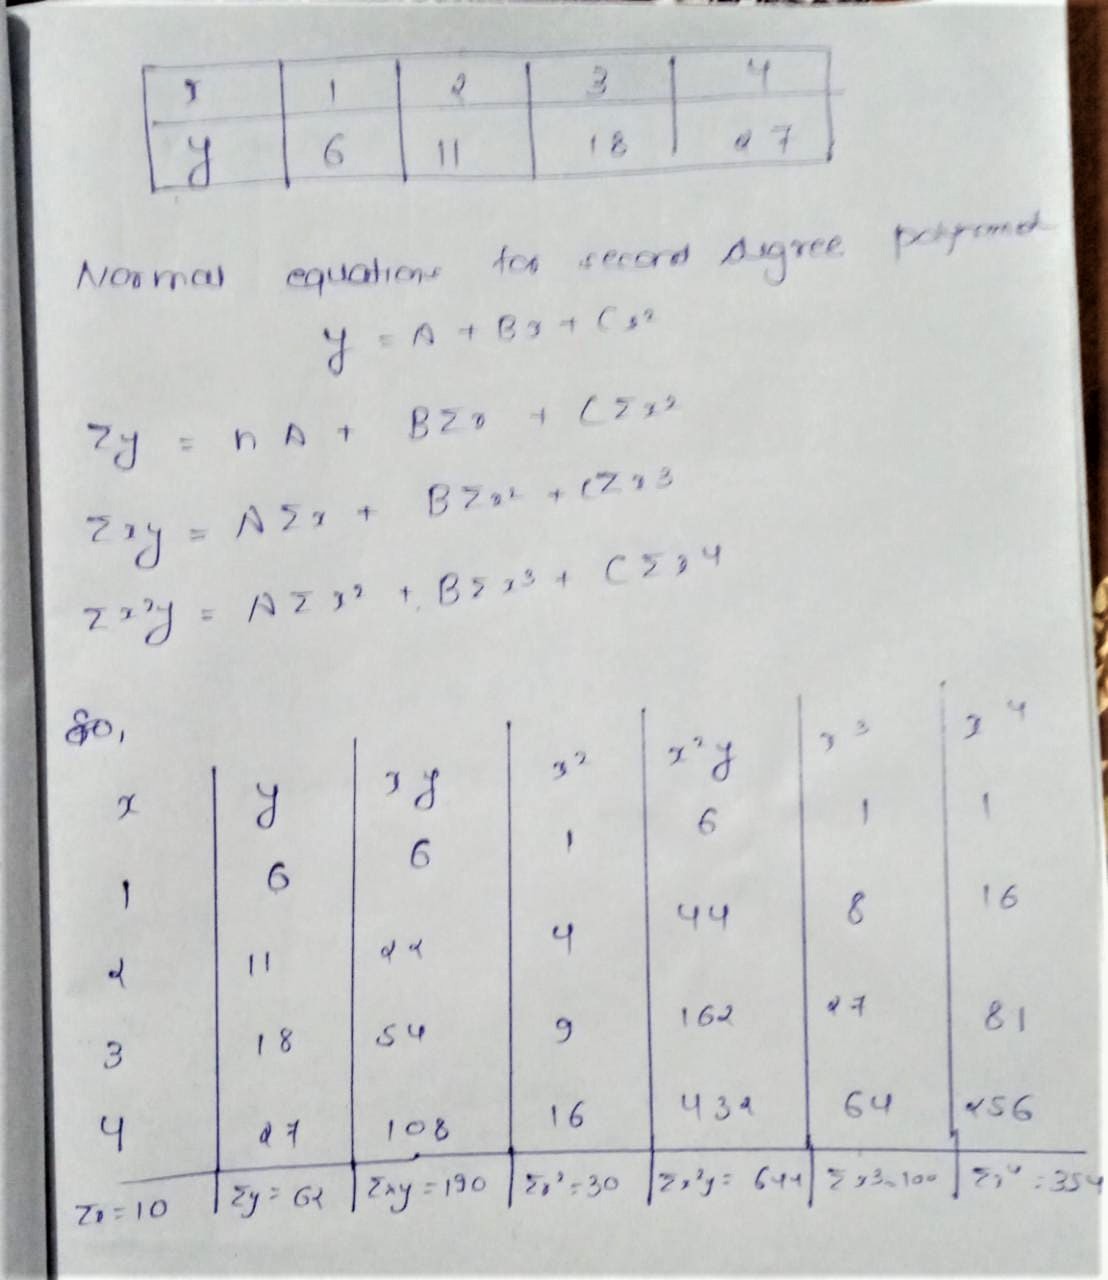 x 1 2 3 4
y 6 11 18 27
Normal equations for second degree polynomial
y = A + Bx + Cx²
Σy = nA + BΣx + CΣx²
Σxy = AΣx + BΣx² + CΣx3
Σx²y = AΣx² + BΣx³ + CΣx4
So,
x y xy x² x²y x³ x4
1 6 6 1 6 1 1
2 11 22 4 44 8 16
3 18 54 9 162 27 81
4 27 108 16 432 64 256
Σx=10 Σy=62 Σxy=190 Σx²=30 Σx²y=644 Σx3=100 Σx⁴=354